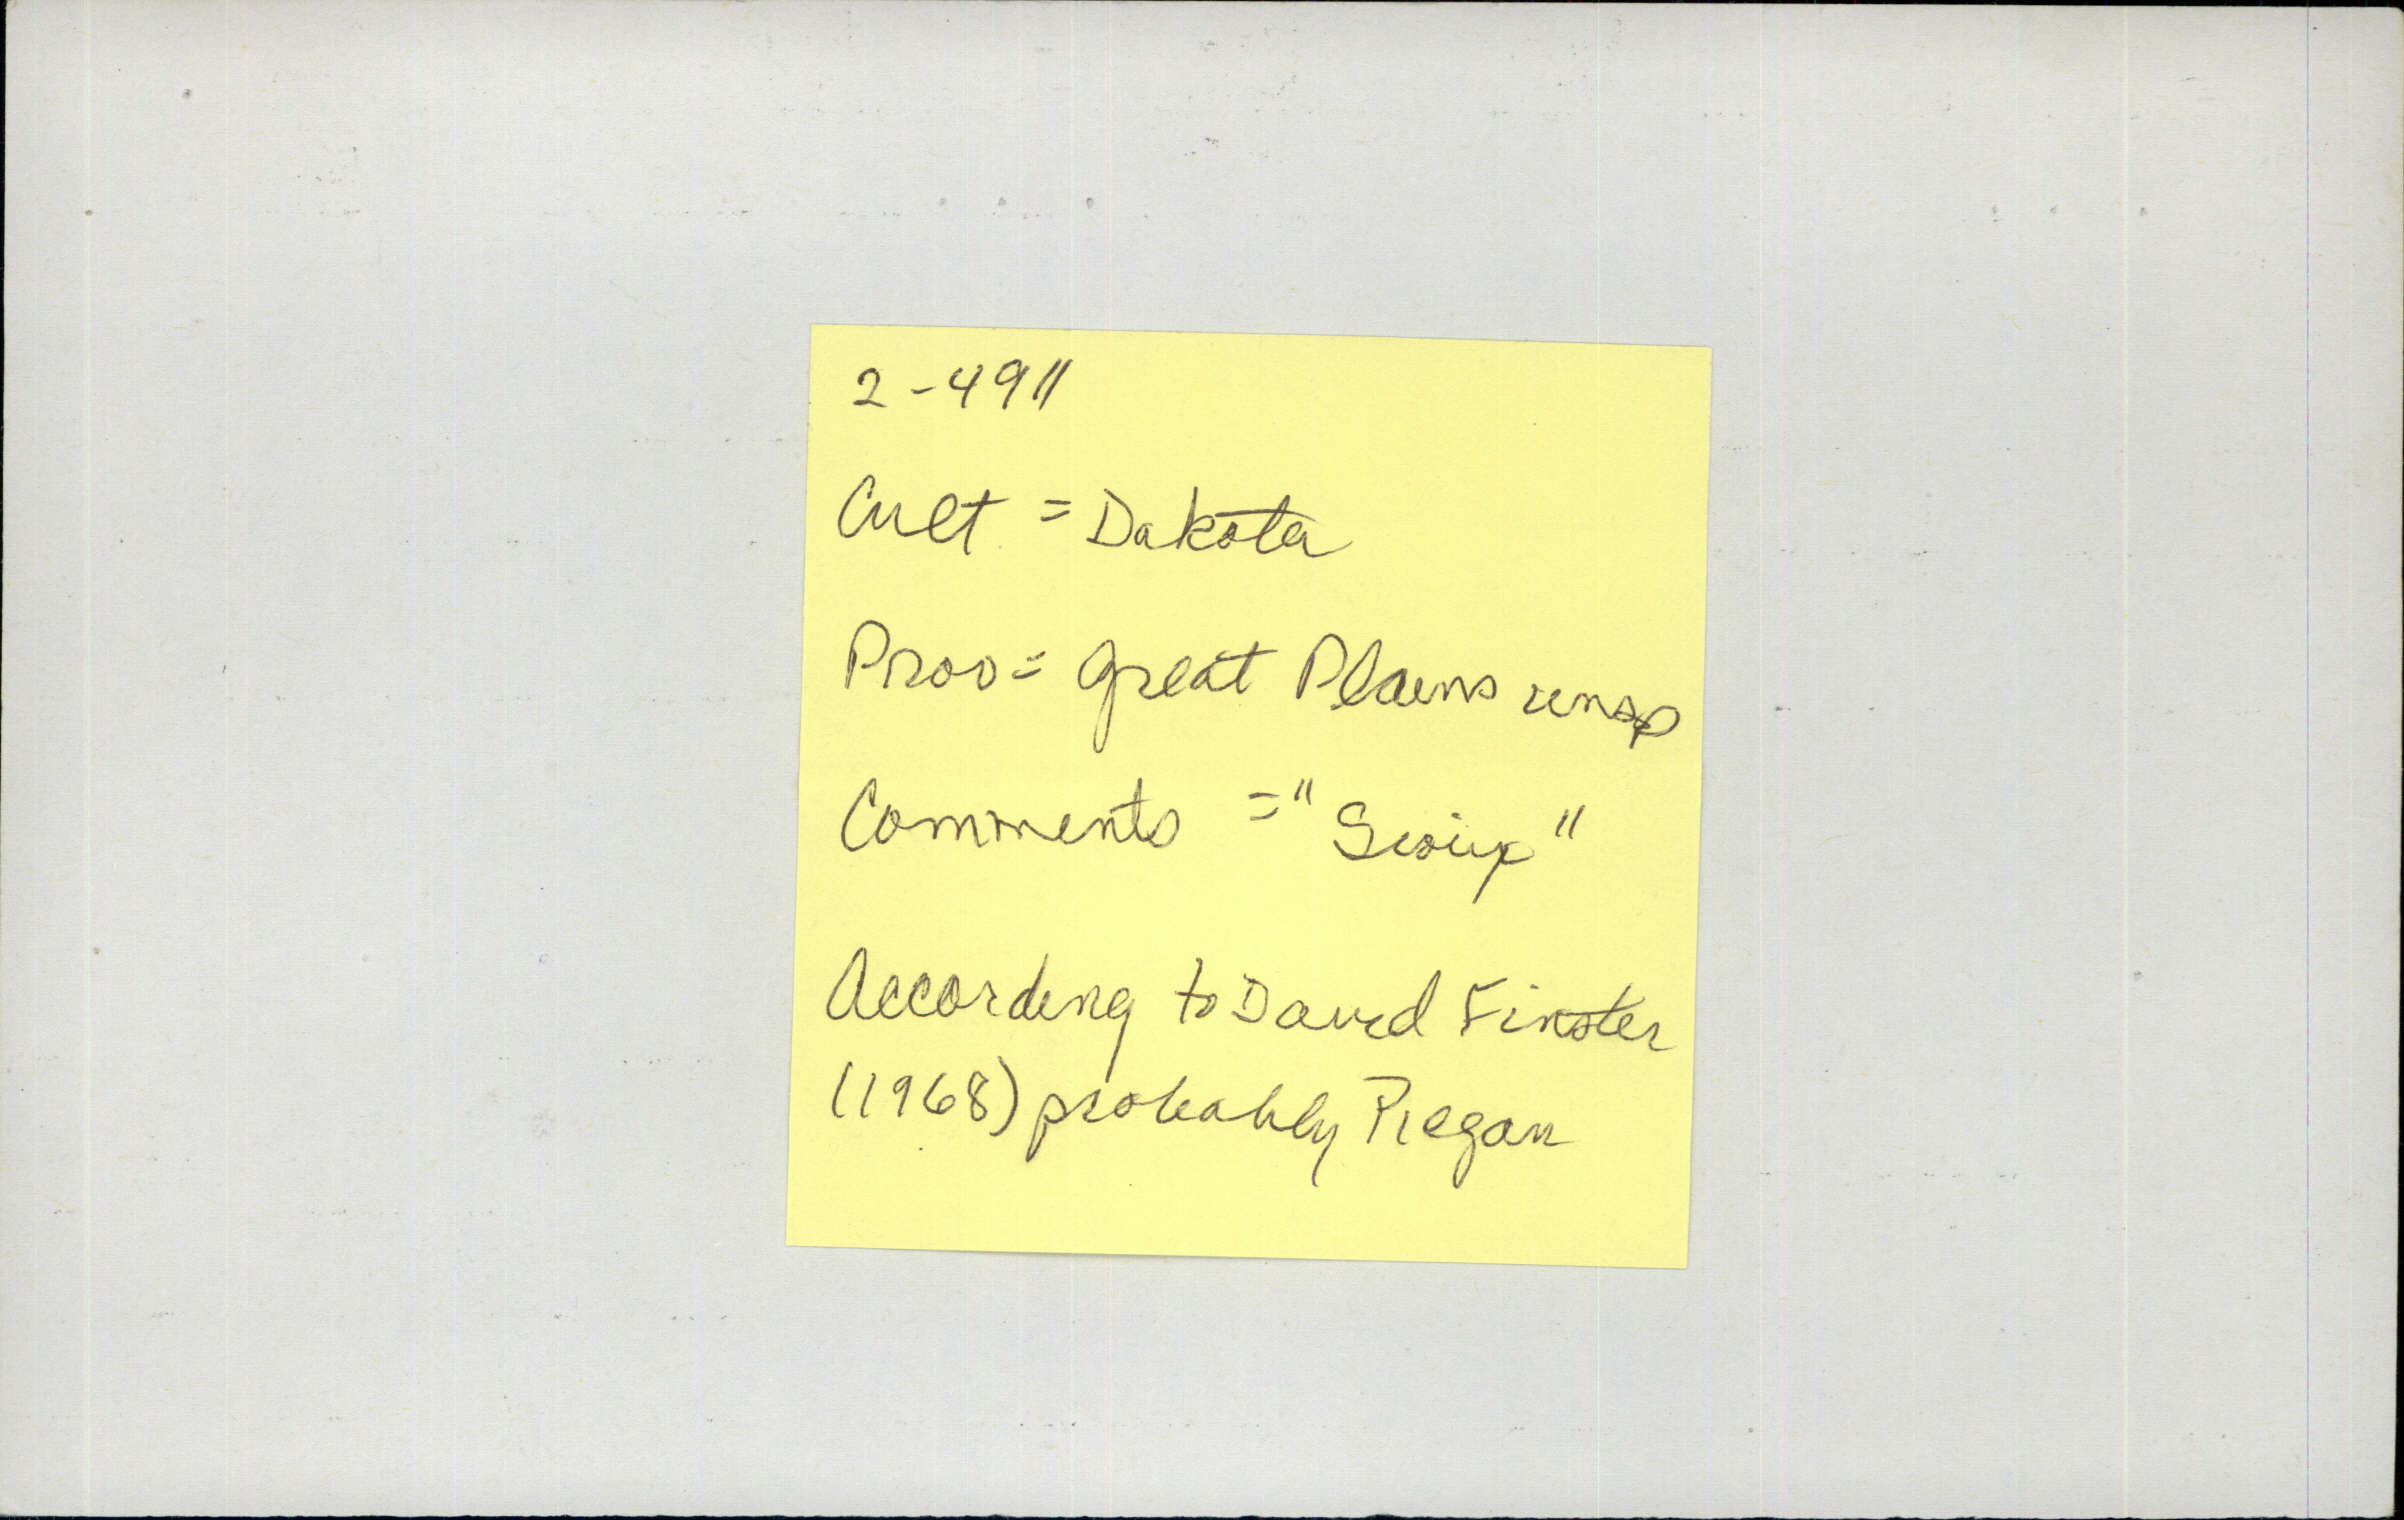 2-4911
Cult = Dakota
Prov = Great Plains unsp
Comments = "Sioux"
According to David Finster
(1968) probably Piegan